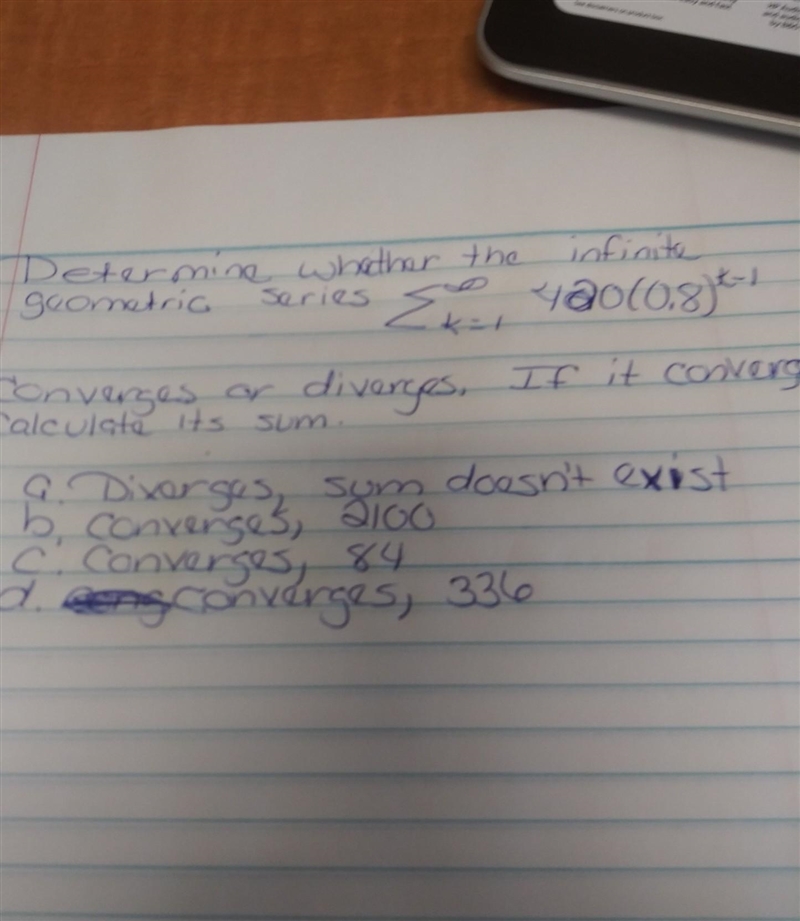 Determine whether the infinite
geometric series ∑_{k=1}^∞ 420(0.8)^{k-1}
Converges or diverges. If it converg
Calculate its sum.
a. Diverges, sum doesn't exist
b. converges, 2100
c. Converges, 84
d. converges, 336